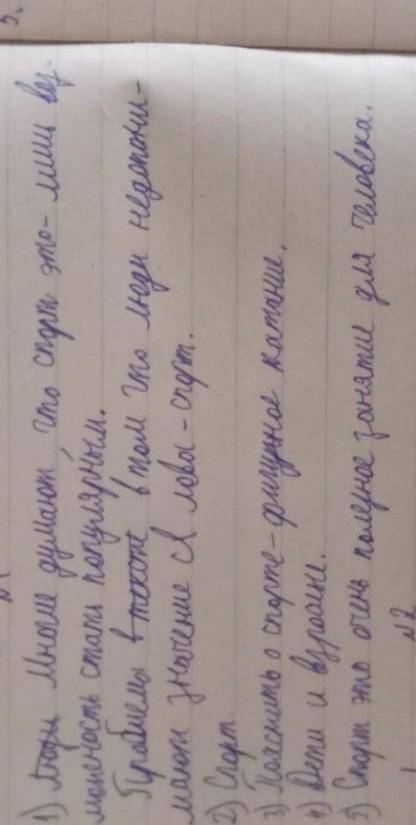 1) Многие думают что спорт это - лиш воз-
можность стать популярным.
Проблемы в том что люди недопони-
мают значение слова - спорт.
2) Спорт.
3) Пояснить о спорте - фигурное катание.
4) Дети и взрослые.
5) Спорт это очень полезное занятие для человека.
№2